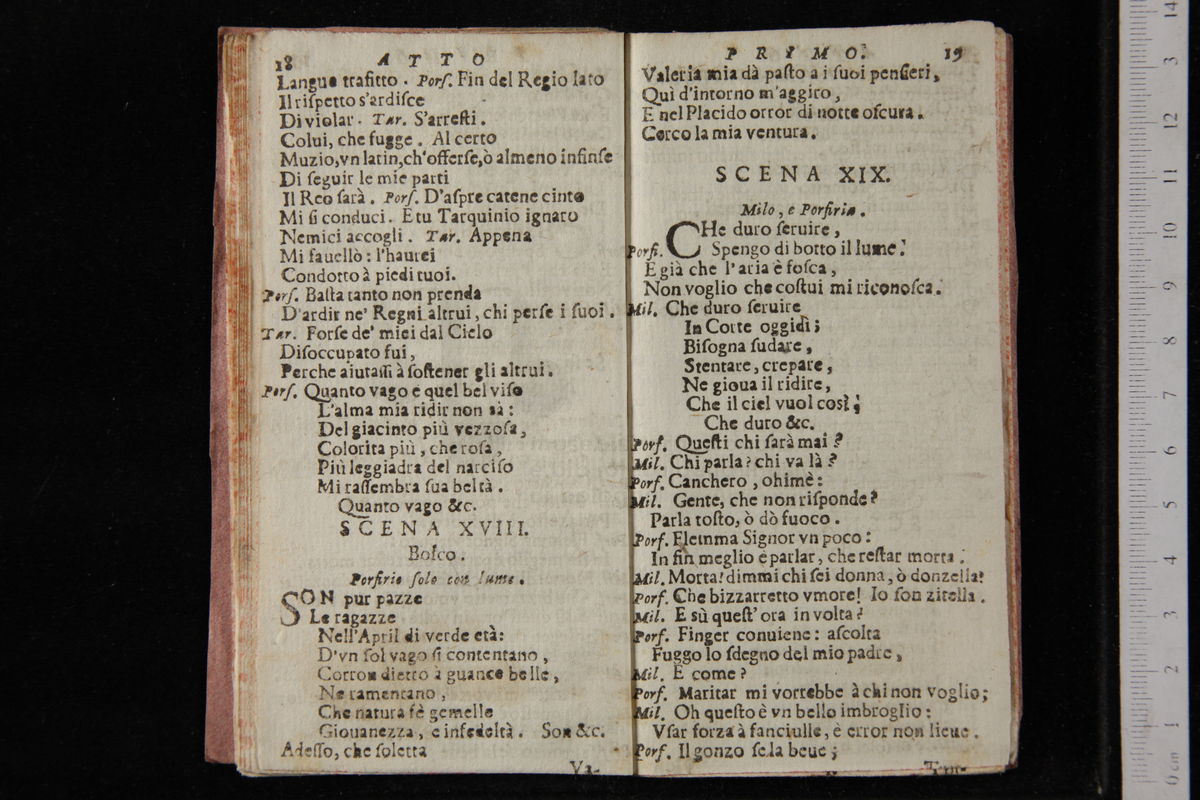 18 ATTO
Langue trafitto. Porſ. Fin del Regio lato
Il riſpetto s'ardiſce
Di violar. Tar. S'arreſti.
Colui, che fugge. Al certo
Muzio, vn latin, ch'offerſe, ò almeno infinſe
Di ſeguir le mie parti
Il Reo ſarà. Porſ. D'aſpre catene cinto
Mi ſi conduci. E tu Tarquinio ignaro
Nemici accogli. Tar. Appena
Mi fauellò: l'haurei
Condotto à piedi tuoi.
Porſ. Baſta tanto non prenda
D'ardir ne' Regni altrui, chi perſe i ſuoi.
Tar. Forſe de' miei dal Cielo
Diſoccupato fui,
Perche aiutaſſi à ſoſtener gli altrui.
Porſ. Quanto vago e quel bel viſo
L'alma mia ridir non sà:
Del giacinto più vezzoſa,
Colorita più, che roſa,
Più leggiadra del narciſo
Mi raſſembra ſua beltà.
Quanto vago &c.
SCENA XVIII.
Boſco.
Porfirio ſolo con lume.
SON pur pazze
Le ragazze
Nell'April di verde età:
D'vn ſol vago ſi contentano,
Corron dietro à guance belle,
Ne ramentano,
Che natura fè gemelle
Giouanezza, e infedeltà. Son &c.
Adeſſo, che ſoletta
Va-
PRIMO. 19
Valeria mia dà paſto a i ſuoi penſieri,
Quì d'intorno m'aggiro,
E nel Placido orror di notte oſcura.
Cerco la mia ventura.
SCENA XIX.
Milo, e Porfirio.
CHe duro ſeruire,
Porfi. Spengo di botto il lume!
E già che l'aria è foſca,
Non voglio che coſtui mi riconoſca.
Mil. Che duro ſeruire
In Corte oggidì;
Biſogna ſudare,
Stentare, crepare,
Ne gioua il ridire,
Che il ciel vuol così;
Che duro &c.
Porf. Queſti chi ſarà mai?
Mil. Chi parla? chi va là?
Porf. Canchero, ohimè:
Mil. Gente, che non riſponde?
Parla toſto, ò dò fuoco.
Porf. Flemma Signor vn poco:
In fin meglio è parlar, che reſtar morta.
Mil. Morta! dimmi chi ſei donna, ò donzella?
Porf. Che bizzarretto vmore! Io ſon zitella.
Mil. E sù queſt'ora in volta?
Porf. Finger conuiene: aſcolta
Fuggo lo ſdegno del mio padre,
Mil. E come?
Porf. Maritar mi vorrebbe à chi non voglio;
Mil. Oh queſto è vn bello imbroglio:
Vſar forza à fanciulle, è error non lieue.
Porf. Il gonzo ſe la beue;